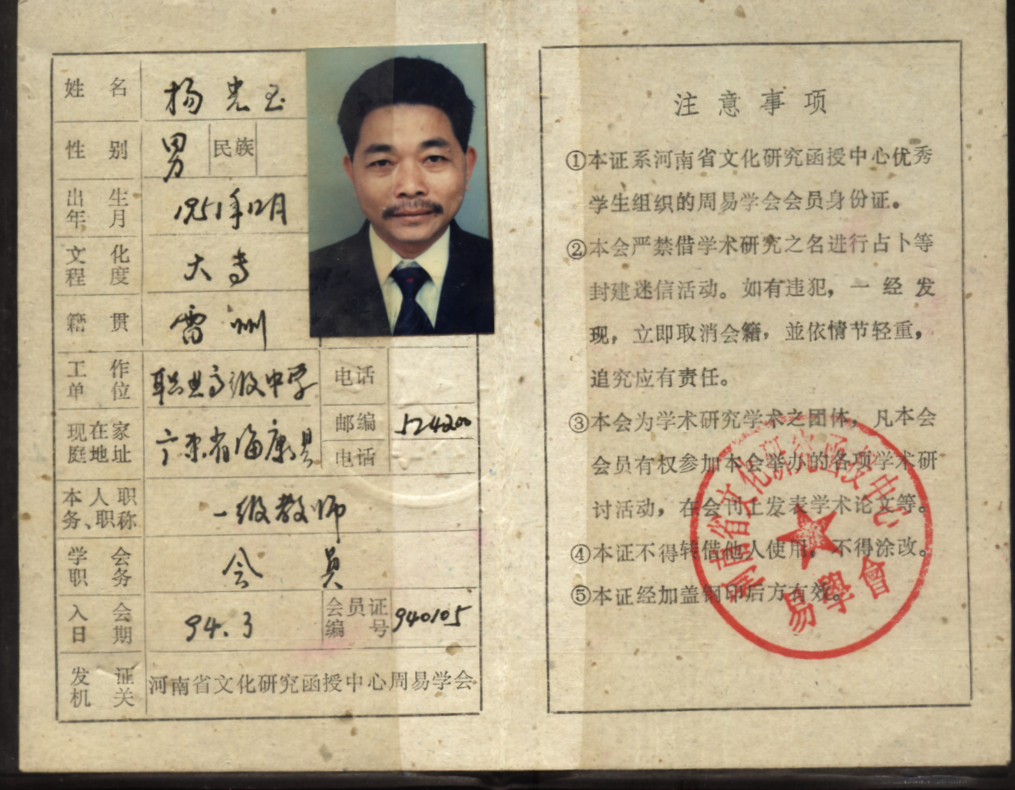 姓名 杨光玉
性别 男 民族
出生年月 1951年12月
文化程度 大专
籍贯 雷州
工作单位 职业高级中学 电话
现在家庭地址 广东省海康县 邮编 524200
电话
本人职务、职称 一级教师
学会职务 会员
入会日期 94.3 会员证编号 940105
发证机关 河南省文化研究函授中心周易学会
注意事项
①本证系河南省文化研究函授中心优秀
学生组织的周易学会会员身份证。
②本会严禁借学术研究之名进行占卜等
封建迷信活动。如有违犯，一经发
现，立即取消会籍，並依情节轻重，
追究应有责任。
③本会为学术研究学术之团体，凡本会
会员有权参加本会举办的各项学术研
讨活动，在会刊上发表学术论文等。
④本证不得转借他人使用，不得涂改。
⑤本证经加盖钢印后方有效。
河南省文化研究函授中心
易學會